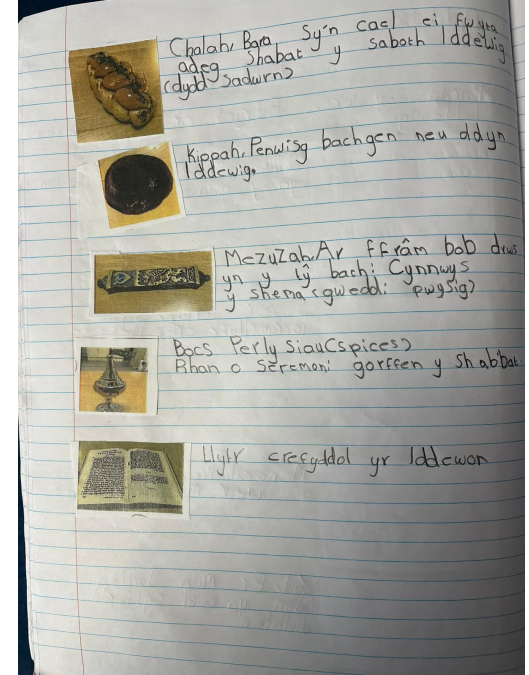 Chalah, Bara sy'n cael ei fwyta
adeg shabat y saboth Iddewig
(dydd sadwrn)
Kippah, Penwisg bachgen neu ddyn
Iddewig.
Mezuzah, Ar ffrâm bob drws
yn y tŷ bach: Cynnwys
y shema (gweddi pwysig)
Bocs Perlysiau (spices)
Rhan o seremoni gorffen y shabbat
Llyfr crefyddol yr Iddewon